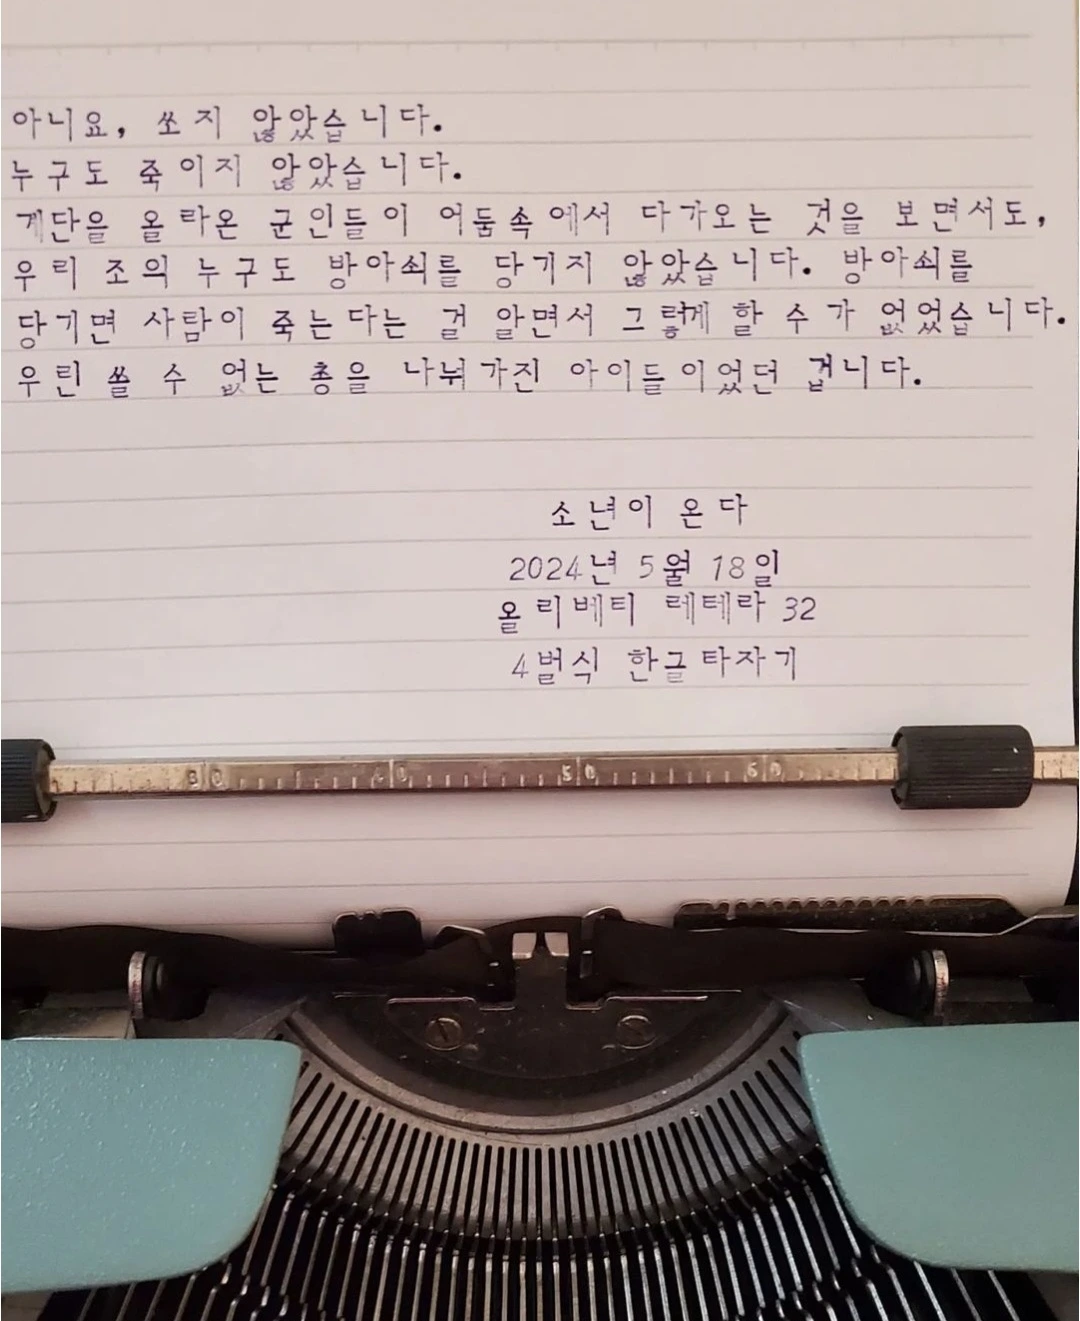 아니요, 쏘지 않았습니다.
누구도 죽이지 않았습니다.
계단을 올라온 군인들이 어둠속에서 다가오는 것을 보면서도,
우리 조의 누구도 방아쇠를 당기지 않았습니다. 방아쇠를
당기면 사람이 죽는다는 걸 알면서 그렇게 할 수가 없었습니다.
우린 쏠 수 없는 총을 나눠가진 아이들이었던 겁니다.
소년이 온다
2024년 5월 18일
올리베티 레테라 32
4벌식 한글타자기
30 40 50 60